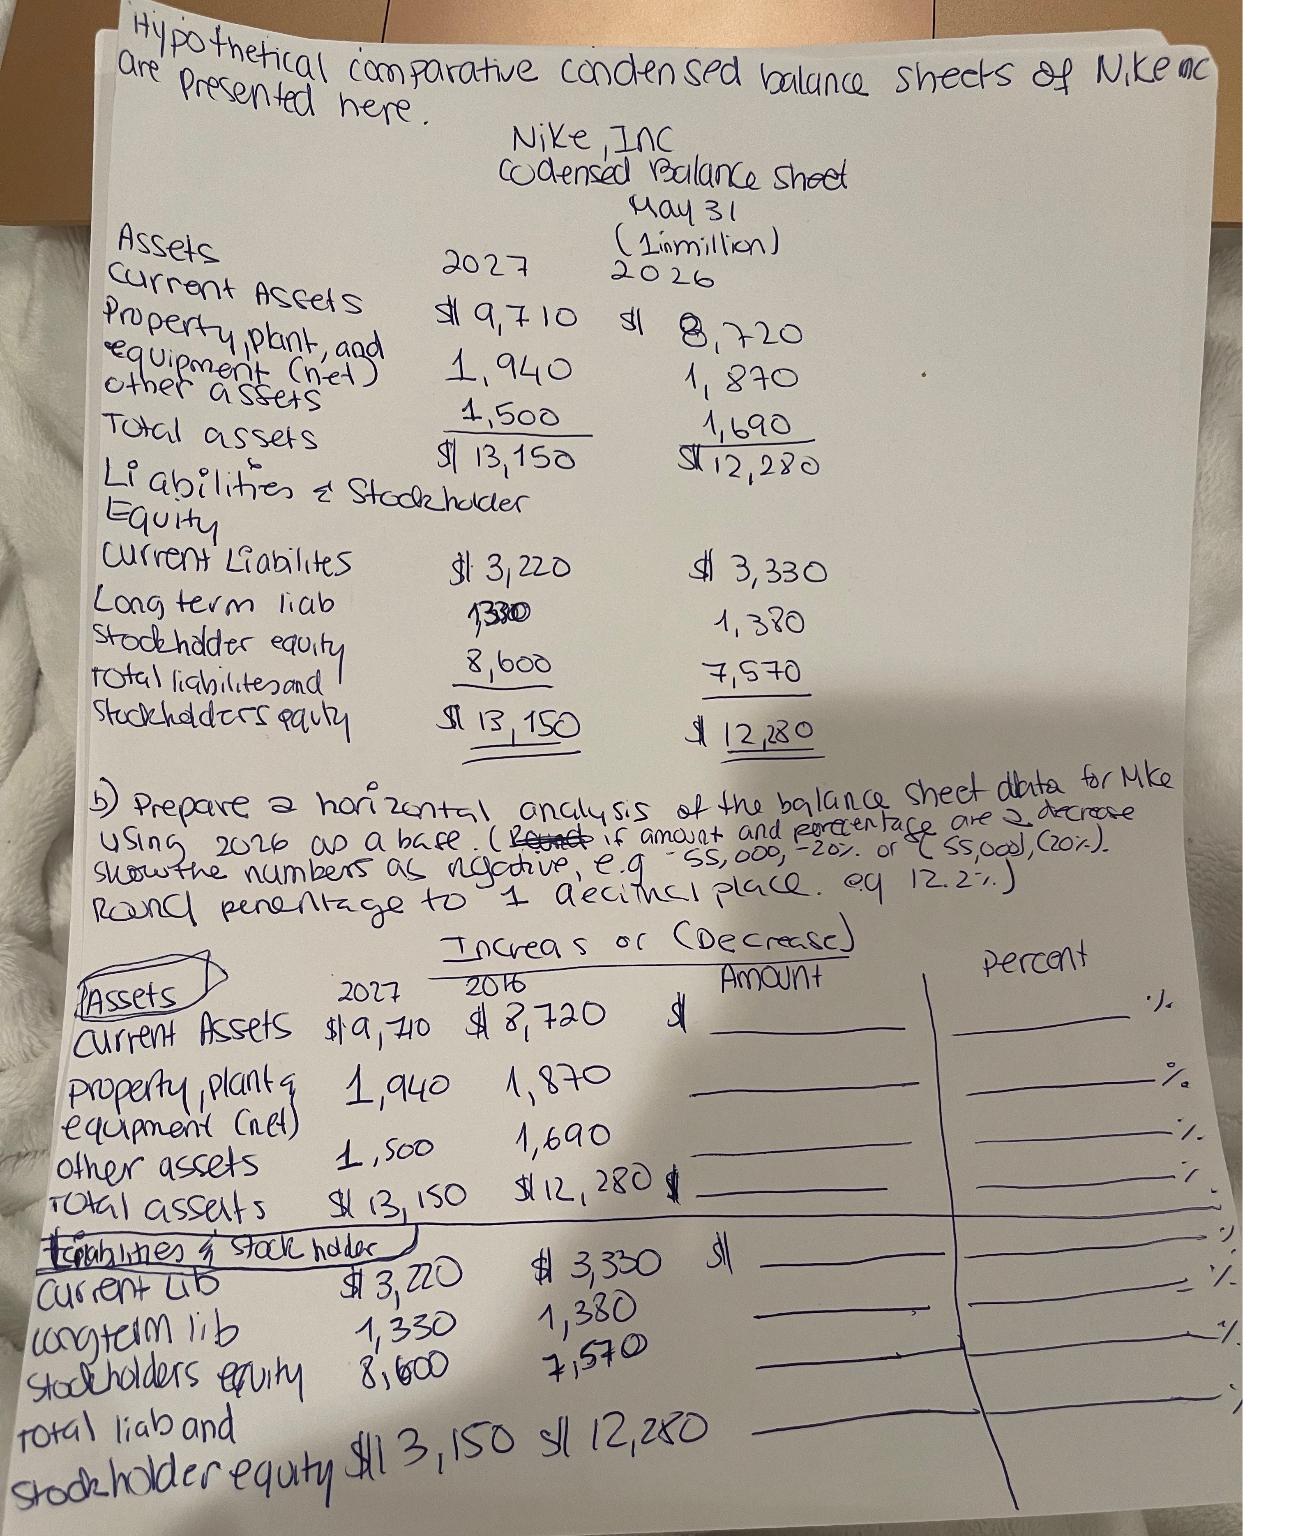 Hypothetical comparative condensed balance sheets of Nike nc
are presented here.
Nike, INC
Codensed Balance Sheet
May 31
(1inmillion)
Assets 2027 2026
Current Assets $ 9,710 $ 8,720
Property, plant, and
equipment (net) 1,940 1,870
other assets 1,500 1,690
Total assets $ 13,150 $ 12,280
Liabilities & Stockholder
Equity
Current Liabilites $ 3,220 $ 3,330
Long term liab 1330 1,380
Stockholder equity 8,600 7,570
Total liabilites and
Stockholders equity $ 13,150 $ 12,280
b) Prepare a horizontal analysis of the balance sheet data for Nike
using 2026 as a base. (Round if amount and percentage are a decrease
show the numbers as negative, e.g -55,000, -20% or (55,000), (20%).
Round percentage to 1 decimal place. eg 12.2%.)
Increas or (Decrease)
Assets 2027 2016 Amount percent
Current Assets $ 9,710 $ 8,720 $ %
property, plant &
equipment (net) 1,940 1,870 %
other assets 1,500 1,690 %
Total assets $ 13,150 $ 12,280 $ %
Liabilities & Stock holder
Current Lib $ 3,220 $ 3,330 $ %
Longterm lib 1,330 1,380 %
Stockholders equity 8,600 7,570 %
Total liab and
Stockholder equity $ 13,150 $ 12,280 %